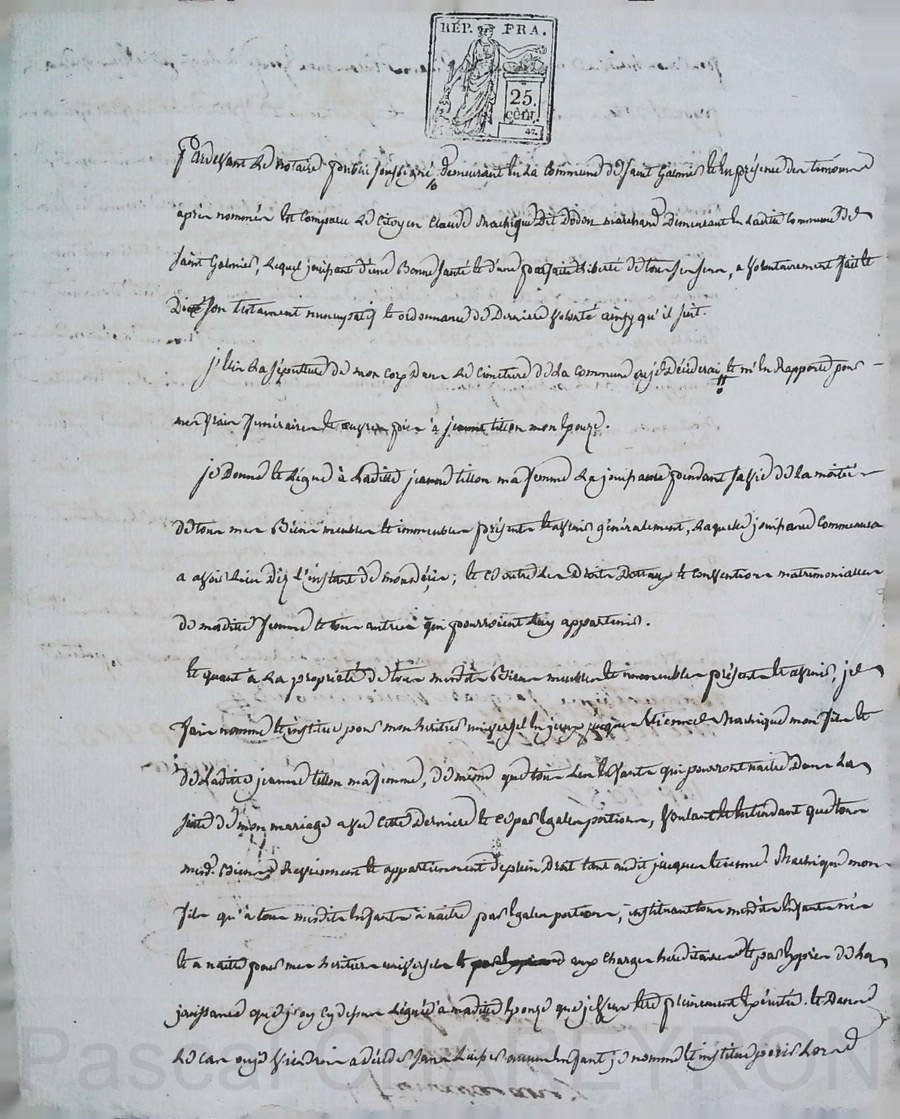 RÉP. FRA.
25.
cent.
Pardevant le notaire public soussigné demeurant en la commune de Saint Galmier et en présence des temoins
après nommés est comparu le citoyen Claude Machique dit Dodon marchand demeurant en ladite commune de
Saint Galmier, lequel jouissant d'une bonne santé et d'une parfaite liberté de tous ses sens, a volontairement fait et
dicté son testament nuncupatif et ordonnance de derniere volonté ainsy qu'il suit.
j'elis la sépulture de mon corp dans le cimetiere de la commune ou je décéderai, et m'en rapporte pour
mes frais funéraires et œuvres pies à jeanne tillon mon épouze.
je donne et légue à ladite jeanne tillon ma femme la jouissance pendant sa vie de la moitié
de tous mes biens meubles et immeubles présents et avenir généralement, laquelle jouissance commencera
a avoir lieu dez l'instant de mon décès; et ce outre les droits dotaux et conventions matrimonialles
de madite femme et tous autres qui pourroient luy appartenir.
et quant à la propriété de tous mesdits biens meubles et immeubles présents et avenir, je
fais nomme et institue pour mon héritier universel jacques etienne Machique mon fils et
de ladite jeanne tillon ma femme, de même que tous les enfants qui pourront naitre dans la
suite de mon mariage avec cette derniere et ce par égales portions, voulant et entendant que tous
mesd. biens reviennent et appartiennent de plein droit tant audit jacques etienne Machique mon
fils qu'à tous mesdits enfants à naitre par égales portions, instituant tous mesdits enfants nés
et a naitre pour mes héritiers universels et aux charges héréditaires et par exprès de la
jouissance que j'ay cy dessus léguée à madite épouze que je veux etre pleinement exécutée. et dans
le cas ou je viendrois a décéder sans laisser aucun enfant, je nomme et institue pour lors
Pascal CHALEYRON